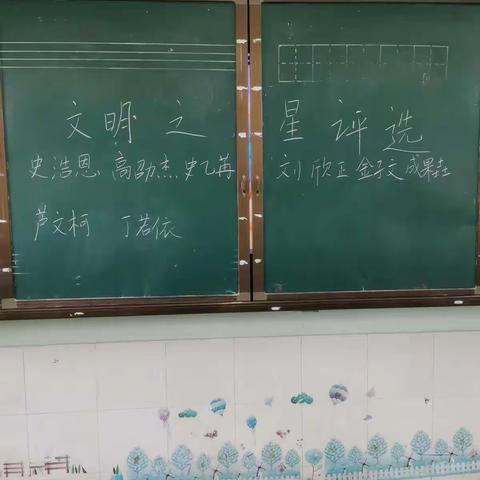 文明之星评选
史浩恩 高劭杰 史乙苒 刘欣正 金子文 成果
芦文柯 丁若依